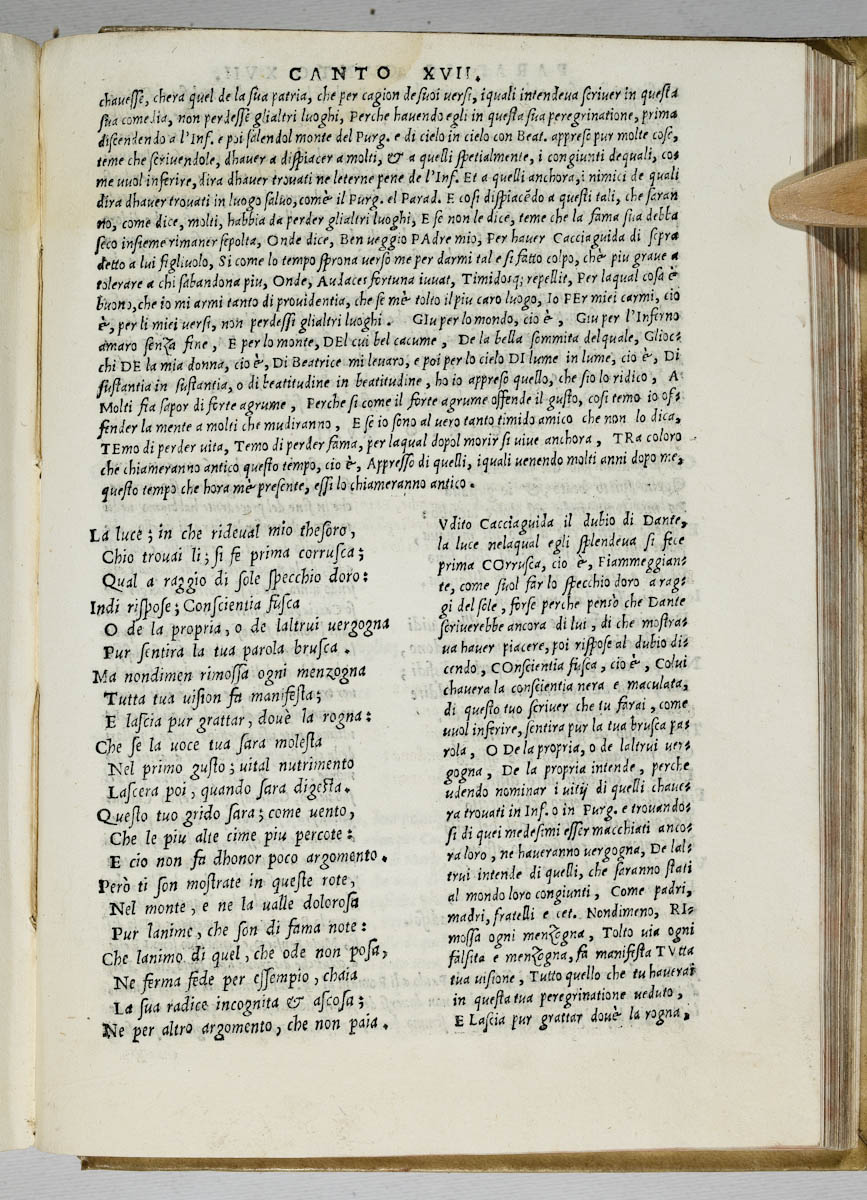 CANTO XVII.
chavesse, chera quel de la sua patria, che per cagion de suoi versi, iquali intendeva scriver in questa
sua comedia, non perdesse glialtri luoghi, Perche havendo egli in questa sua peregrinatione, prima
discendendo a l'Inf. e poi salendol monte del Purg. e di cielo in cielo con Beat. apprese pur molte cose,
teme che scrivendole, dhaver a dispiacer a molti, & a quelli spetialmente, i congiunti dequali, co⸗
me vuol inferire, dira dhaver trovati ne leterne pene de l'Inf. Et a quelli anchora, i nimici de quali
dira dhaver trovati in luogo salvo, comè il Purg. el Parad. E cosi dispiacēdo a questi tali, che saran
no, come dice, molti, habbia da perder glialtri luoghi, E se non le dice, teme che la fama sua debba
seco insieme rimaner sepolta, Onde dice, Ben veggio PAdre mio, Per haver Cacciaguida di sopra
detto a lui figlivolo, Si come lo tempo sprona verso me per darmi tal e si fatto colpo, chè piu grave a
tolerare a chi sabandona piu, Onde, Audaces fortuna iuvat, Timidosq; repellit, Per laqual cosa è
buono, che io mi armi tanto di providentia, che se mè tolto il piu caro luogo, Io PEr miei carmi, cio
è, per li miei versi, non perdessi glialtri luoghi. GIu per lo mondo, cio è, Giu per l'Inferno
amaro senza fine, E per lo monte, DEl cui bel cacume, De la bella sommita delquale, Glioc⸗
chi DE la mia donna, cio è, Di Beatrice mi levaro, e poi per lo cielo DI lume in lume, cio è, Di
sustantia in sustantia, o di beatitudine in beatitudine, ho io appreso quello, che sio lo ridico, A
Molti fia sapor di forte agrume, Perche si come il forte agrume offende il gusto, cosi temo io of⸗
fender la mente a molti che mudiranno, E se io sono al vero tanto timido amico che non lo dica,
TEmo di perder vita, Temo di perder fama, per laqual dopol morir si vive anchora, TRa coloro
che chiameranno antico questo tempo, cio è, Appresso di quelli, iquali venendo molti anni dopo me,
questo tempo che hora mè presente, essi lo chiameranno antico.
La luce; in che rideval mio thesoro,
Chio trovai li; si fe prima corrusca;
Qual a raggio di sole specchio doro:
Indi rispose; Conscientia fusca
O de la propria, o de laltrui vergogna
Pur sentira la tua parola brusca.
Ma nondimen rimossa ogni menzogna
Tutta tua vision fa manifesta;
E lascia pur grattar, dovè la rogna:
Che se la voce tua sara molesta
Nel primo gusto; vital nutrimento
Lascera poi, quando sara digesta.
Questo tuo grido sara; come vento,
Che le piu alte cime piu percote:
E cio non fa dhonor poco argomento.
Però ti son mostrate in queste rote,
Nel monte, e ne la valle dolorosa
Pur lanime, che son di fama note:
Che lanimo di quel, che ode non posa,
Ne ferma fede per essempio, chaia
La sua radice incognita & ascosa;
Ne per altro argomento, che non paia.
Vdito Cacciaguida il dubio di Dante,
la luce nelaqual egli splendeva si fece
prima COrrusca, cio è, Fiammeggian⸗
te, come suol far lo specchio doro a rag⸗
gi del sole, forse perche pensò che Dante
scriverebbe ancora di lui, di che mostra⸗
va haver piacere, poi rispose al dubio di⸗
cendo, COnscientia fusca, cio è, Colui
chavera la conscientia nera e maculata,
di questo tuo scriver che tu farai, come
vuol inferire, sentira pur la tua brusca pa⸗
rola, O De la propria, o de laltrui ver⸗
gogna, De la propria intende, perche
udendo nominar i vitij di quelli chave⸗
ra trovati in Inf. o in Purg. e trovando⸗
si di quei medesimi esser macchiati anco⸗
ra loro, ne haveranno vergogna, De lal⸗
trui intende di quelli, che saranno stati
al mondo loro congiunti, Come padri,
madri, fratelli e cet. Nondimeno, RI⸗
mossa ogni menzogna, Tolto via ogni
falsita e menzogna, fa manifesta TVtta
tua visione, Tutto quello che tu haverai
in questa tua peregrinatione veduto,
E Lascia pur grattar dovè la rogna,